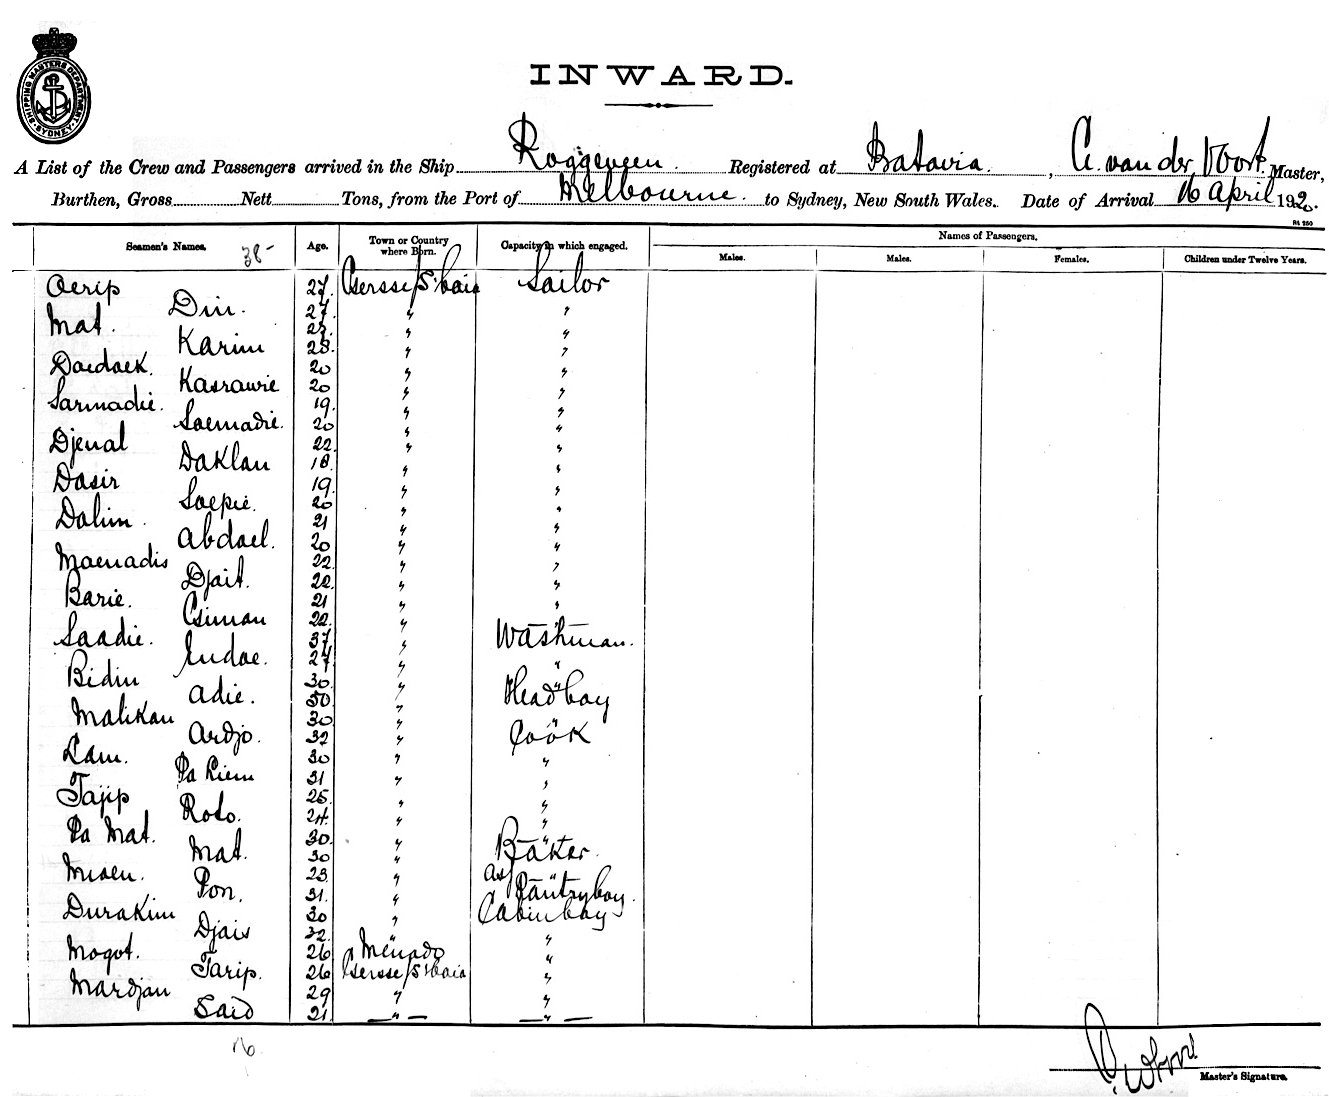 SHIPPING MASTERS DEPARTMENT SYDNEY
INWARD.
A List of the Crew and Passengers arrived in the Ship Roggeveen. Registered at Batavia. , C. van der Voort. Master,
Burthen, Gross Nett Tons, from the Port of Melbourne. to Sydney, New South Wales. Date of Arrival 16 April 192 .
Seamen's Names. 38- Age. Town or Country where Born. Capacity in which engaged. Names of Passengers.
Males. Males. Females. Children under Twelve Years.
Oerip 27. Gersse/S'baia Sailor
Din. 27 " "
Mat. " "
Karim 28. " "
Daedaek. 20 " "
Kasrawie 20 " "
Sarmadie. 19. " "
Soemadie. 20 " "
Djenal 22 " "
Daklan 18 " "
Dasir 19. " "
Soepie. 20 " "
Dalim. 21 " "
Abdoel. 20 " "
Moenadis 22 " "
Djait. 22 " "
Barie. 21 " "
Csiman 22 " "
Saadie. 37 " Washman.
Indoe. 27 " "
Bidin 30 " "
Adie. 50 " Headboy
Malikan 30 " "
Ardjo. 32 " Cook
Lam. 30 " "
Pa Riem 31 " "
Tajip 25. " "
Roto. 24. " "
Pa Mat. 30. " "
Mat. 30 " Baker.
Misen. 23 " ass
Pon. 31. " Pantryboy.
Durakim 30 " Cabinboy
Djais 32 " "
Mogot. 26 Menado "
Tarip. 26 Gersse/S'baia "
Mardjan 29 " "
Said 21 — " — — " —
16
Master's Signature.